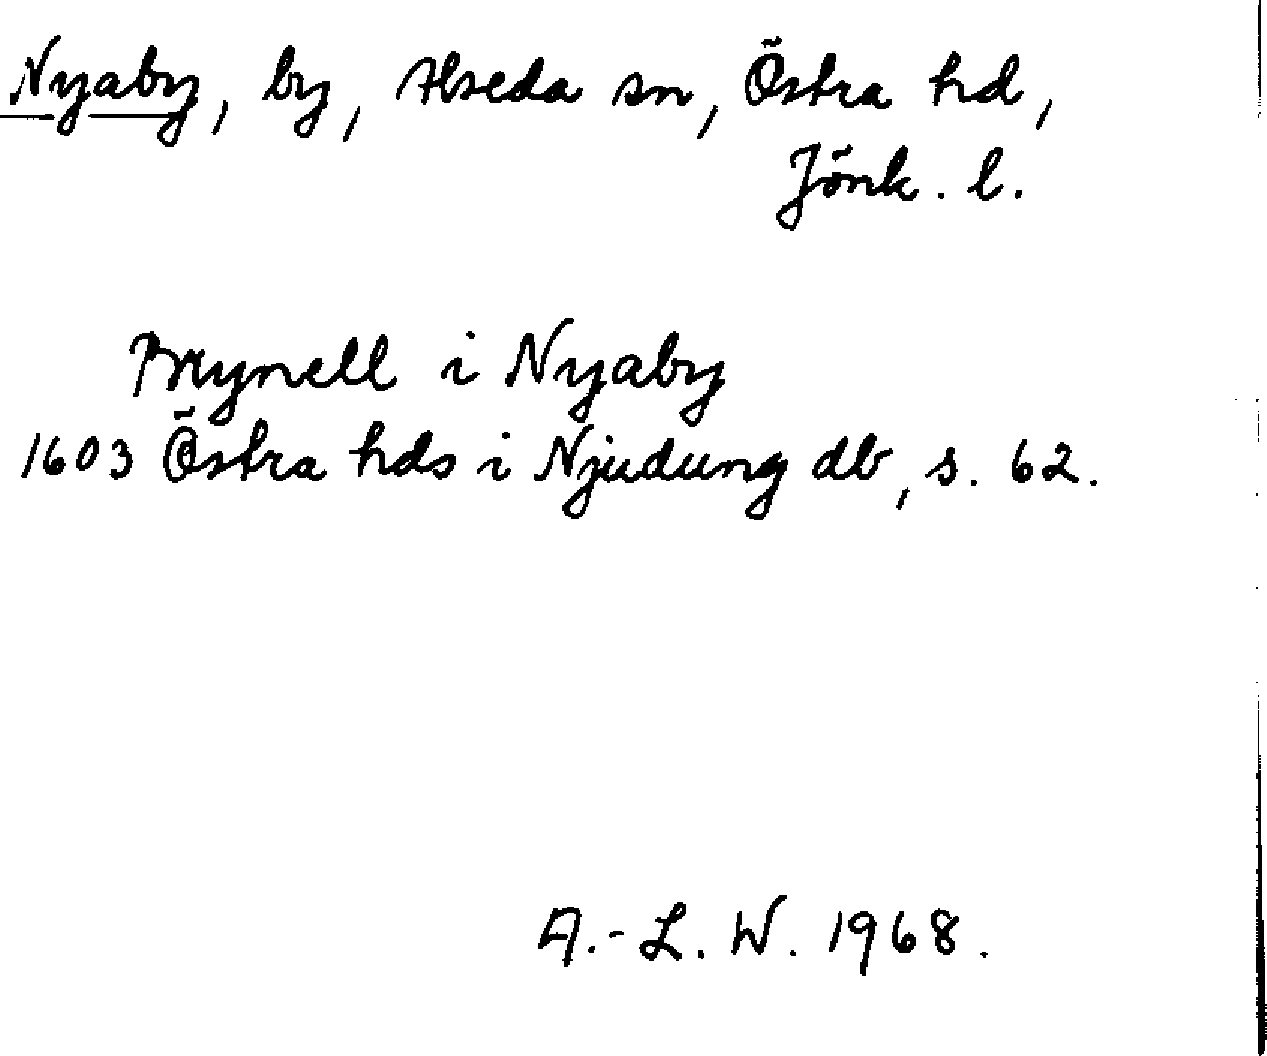 Nyaby, by, Alseda sn, Östra hd,
Jönk. l.
Brynell i Nyaby
1603 Östra hds i Njudung db, s. 62.
A.-L. W. 1968.